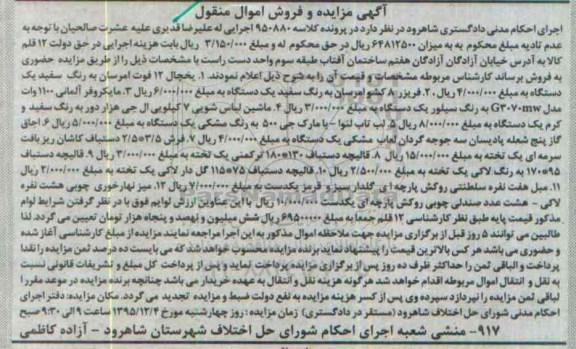 آگهی مزایده و فروش اموال منقول
اجرای احکام مدنی دادگستری شاهرود در نظر دارد در پرونده کلاسه ۹۵۰۸۸۰ اجرایی له علیرضا قدیری علیه عشرت صالحیان با توجه به
عدم تادیه مبلغ محکوم به به میزان ۶۴۸۱۲۵۰۰ ریال در حق محکوم له و مبلغ ۳/۱۵۰/۰۰۰ ریال بابت هزینه اجرایی در حق دولت ۱۲ قلم
کالا به آدرس خیابان آزادگان آزادگان هفتم ساختمان آفتاب طبقه سوم واحد دست راست با مشخصات ذیل را از طریق مزایده حضوری
به فروش برساند کارشناس مربوطه مشخصات و قیمت آن را به شرح ذیل اعلام نمودند. ۱. یخچال ۱۲ فوت امرسان به رنگ سفید یک
دستگاه به مبلغ ۴/۰۰۰/۰۰۰ ریال ۲. فریزر ۸ کشو امرسان به رنگ سفید یک دستگاه به مبلغ ۶/۰۰۰/۰۰۰ ریال ۳. مایکروفر آلمانی ۱۱۰۰ وات
مدل G۲۰۷۰mw به رنگ سیلور یک دستگاه به مبلغ ۳/۰۰۰/۰۰۰ ریال ۴. ماشین لباس شویی ۷ کیلویی ال جی هزار دور به رنگ سفید و
کرم یک دستگاه به مبلغ ۸/۰۰۰/۰۰۰ ریال ۵. لب تاب لنوا – با مارک جی ۵۰۰ به رنگ مشکی یک دستگاه به مبلغ ۵/۰۰۰/۰۰۰ ریال ۶. اجاق
گاز پنج شعله پادیسان سه جوجه گردان لعاب مشکی یک دستگاه به مبلغ ۴/۰۰۰/۰۰۰ ریال ۷. فرش ۳/۵*۲/۵ دستباف کاشان ریز بافت
سرمه ای یک تخته به مبلغ ۱۵/۰۰۰/۰۰۰ ریال ۸. قالیچه دستباف ۱۳۰*۱۸۰ ترکمنی یک تخته به مبلغ ۳/۰۰۰/۰۰۰ ریال ۹. قالیچه دستباف
۹۵*۱۷۰ به رنگ لاکی یک تخته به مبلغ ۲/۵۰۰/۰۰۰ ریال ۱۰. قالیچه دستباف ۷۵*۱۱۵ گل دار لاکی یک تخته به مبلغ ۲/۰۰۰/۰۰۰ ریال
۱۱. مبل هفت نفره سلطنتی روکش پارچه ای گلدار سبز و قرمز یکدست به مبلغ ۷/۰۰۰/۰۰۰ ریال ۱۲. میز نهارخوری چوبی هشت نفره
لاکی – هشت عدد صندلی چوبی روکش پارچه ای یکدست ۱۰/۰۰۰/۰۰۰ ریال با این عناوین ارزش لوازم فوق با در نظر گرفتن شرایط لوام
مذکور قیمت پایه طبق نظر کارشناسی ۱۲ قلم جمعا به مبلغ ۶۹۵۰۰۰۰۰ ریال شش میلیون و نهصد و پنجاه هزار تومان تعیین می گردد. لذا
طالبین می توانند ۵ روز قبل از برگزاری مزایده جهت ملاحظه اموال مذکور به این اجرا مراجعه نمایند مزایده از مبلغ کارشناسی آغاز شده
و حضوری می باشد هر کس بالاترین قیمت را پیشنهاد نماید برنده مزایده محسوب خواهد شد که می بایست ده درصد ثمن مزایده را نقدا
پرداخت و الباقی ثمن را حداکثر ظرف ده روز پس از برگزاری مزایده پرداخت نماید و پس از پرداخت کل مبلغ و تشریفات قانونی نسبت
به نقل و انتقال اموال مربوطه اقدام خواهد شد هرگونه هزینه نقل و انتقال به عهده خریدار می باشد چنانچه برنده مزایده در موعد مقرر ا
لباقی ثمن مزایده را نپردازد سپرده وی پس از کسر هزینه مزایده به نفع دولت ضبط و مزایده تجدید می گردد. مکان مزایده: دفتر اجرای
احکام مدنی شورای حل اختلاف شاهرود (مستقر در دادگستری) زمان مزایده: روز چهارشنبه مورخ ۱۳۹۵/۱۲/۴ ساعت ۹ الی ۹:۳۰ صبح
۹۱۷- منشی شعبه اجرای احکام شورای حل اختلاف شهرستان شاهرود – آزاده کاظمی